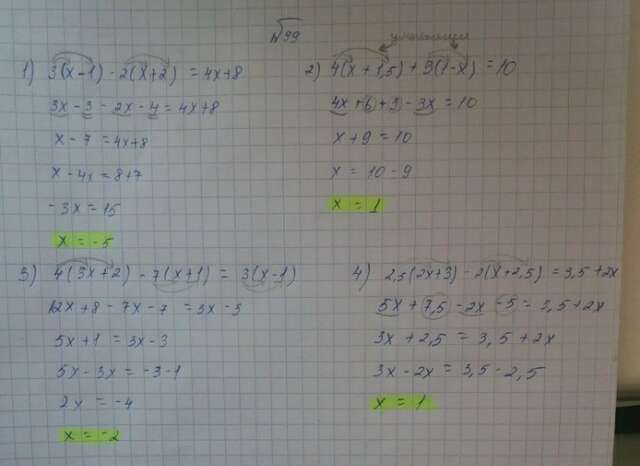 №99
1) 3(x-1) - 2(x+2) = 4x+8
3x - 3 - 2x - 4 = 4x+8
x - 7 = 4x+8
x - 4x = 8+7
-3x = 15
x = -5
2) 4(x + 1,5) + 3(1-x) = 10
4x + 6 + 3 - 3x = 10
x + 9 = 10
x = 10 - 9
x = 1
3) 4(3x+2) - 7(x+1) = 3(x-1)
12x + 8 - 7x - 7 = 3x - 3
5x + 1 = 3x - 3
5x - 3x = -3 - 1
2x = -4
x = -2
4) 2,5(2x+3) - 2(x+2,5) = 3,5 + 2x
5x + 7,5 - 2x - 5 = 3,5 + 2x
3x + 2,5 = 3,5 + 2x
3x - 2x = 3,5 - 2,5
x = 1